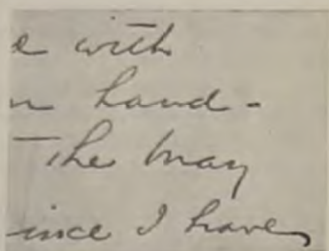 e with
n hand -
The may
ince I have